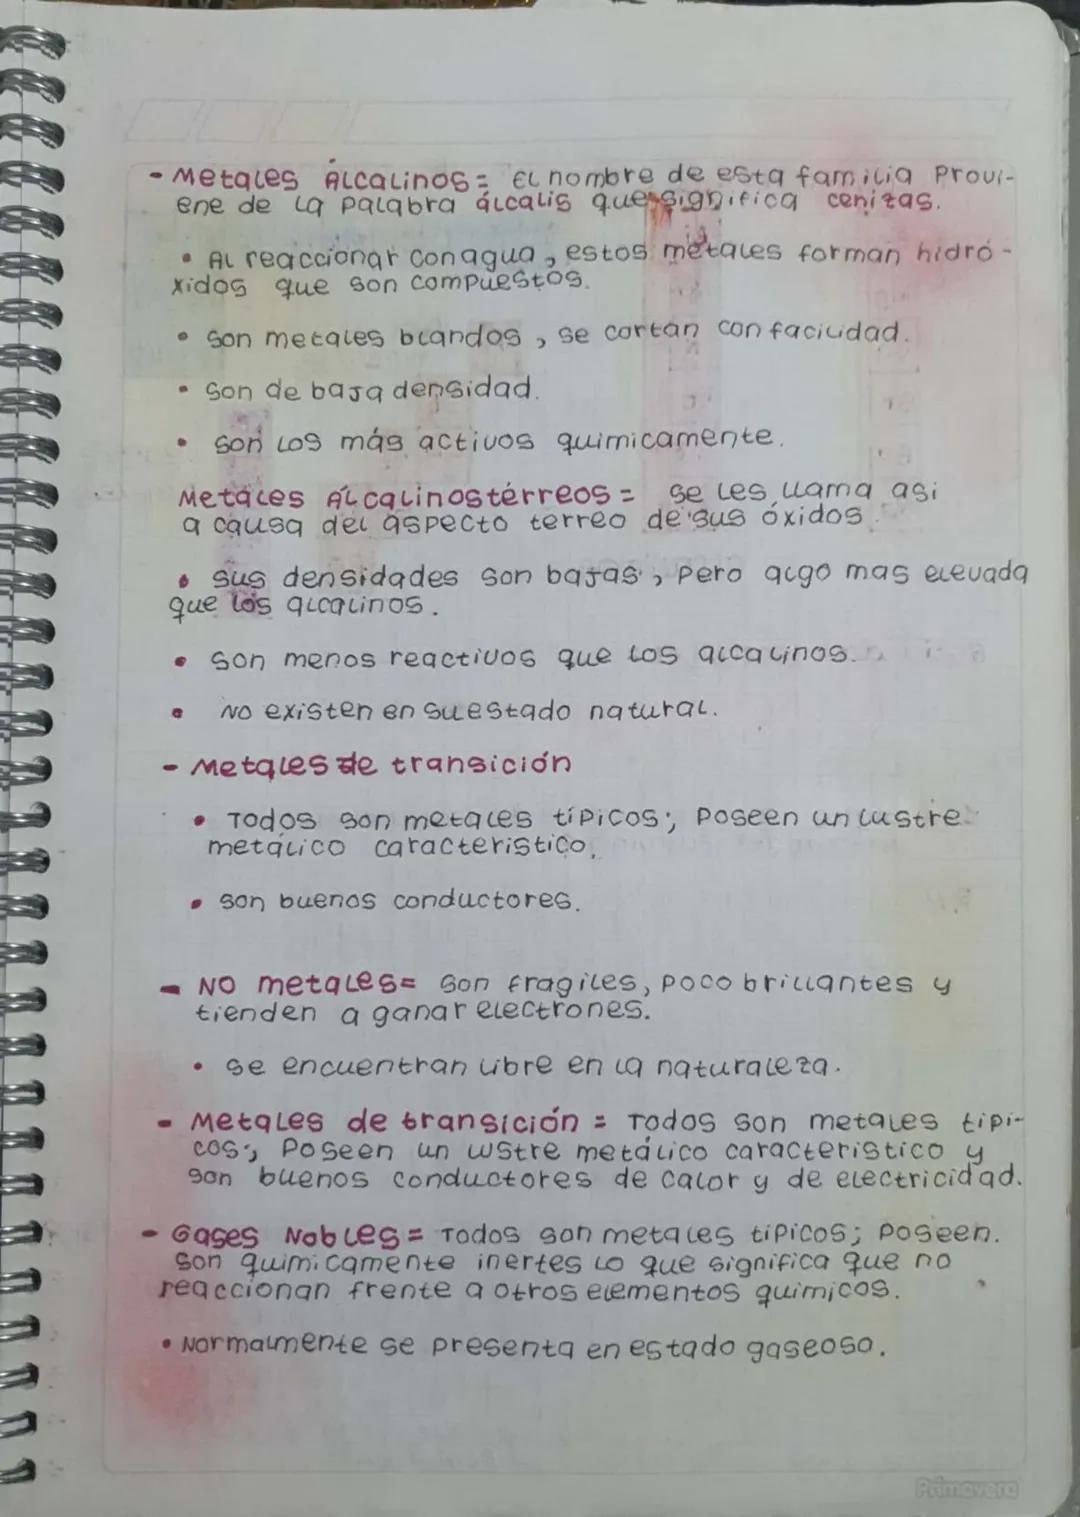 - Metales Álcalinos = El nombre de esta familia Provi-
ene de la palabra álcalis que significa cenizas.
• Al reaccionar con agua, estos metales forman hidró-
xidos que son compuestos.
• son metales blandos, se cortan con facilidad.
• son de baja densidad.
• son los más activos quimicamente.
Metales Álcalinostérreos = se les llama asi
a causa del aspecto terreo de sus óxidos
• sus densidades son bajas, pero algo mas elevada
que los alcalinos.
• son menos reactivos que los alcalinos.
• No existen en su estado natural.
- Metales de transición
• Todos son metales típicos; poseen un lustre
metálico caracteristico.
• son buenos conductores.
- No metales = son fragiles, poco brillantes y
tienden a ganar electrones.
• se encuentran libre en la naturaleza.
- Metales de transición = Todos son metales tipi-
cos; Poseen un lustre metálico caracteristico y
son buenos conductores de calor y de electricidad.
- Gases Nobles = Todos son metales tipicos; poseen.
son quimicamente inertes lo que significa que no
reaccionan frente a otros elementos quimicos.
• Normalmente se presenta en estado gaseoso.
Primavera